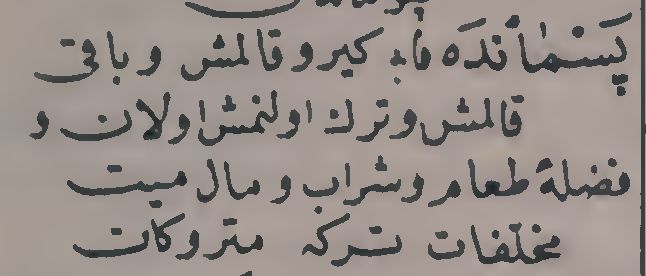 پسمانده فا، كيرو قالمش و باقى
قالمش و ترك اولنمش اولان و
فضلهٔ طعام و شراب و مال ميت
مخلفات تركه متروكات